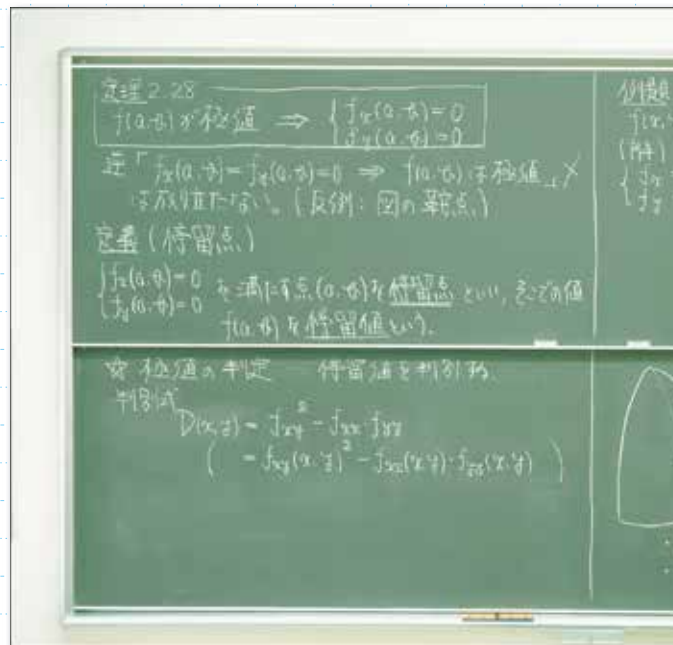 定理 2.28
f(a,b)が極値 ⇒ { fx(a,b)=0
fy(a,b)=0
逆「fx(a,b)=fy(a,b)=0 ⇒ f(a,b)は極値」×
は成り立たない。(反例:図の鞍点)
定義(停留点)
{ fx(a,b)=0
fy(a,b)=0 を満たす点(a,b)を停留点といい,そこでの値
f(a,b)を停留値という.
☆ 極値の判定 停留値を判別
判別式
D(x,y) = fxy² - fxx・fyy
( = fxy(x,y)² - fxx(x,y)・fyy(x,y) )
例題
f(x,
(解)
{ fx
fy